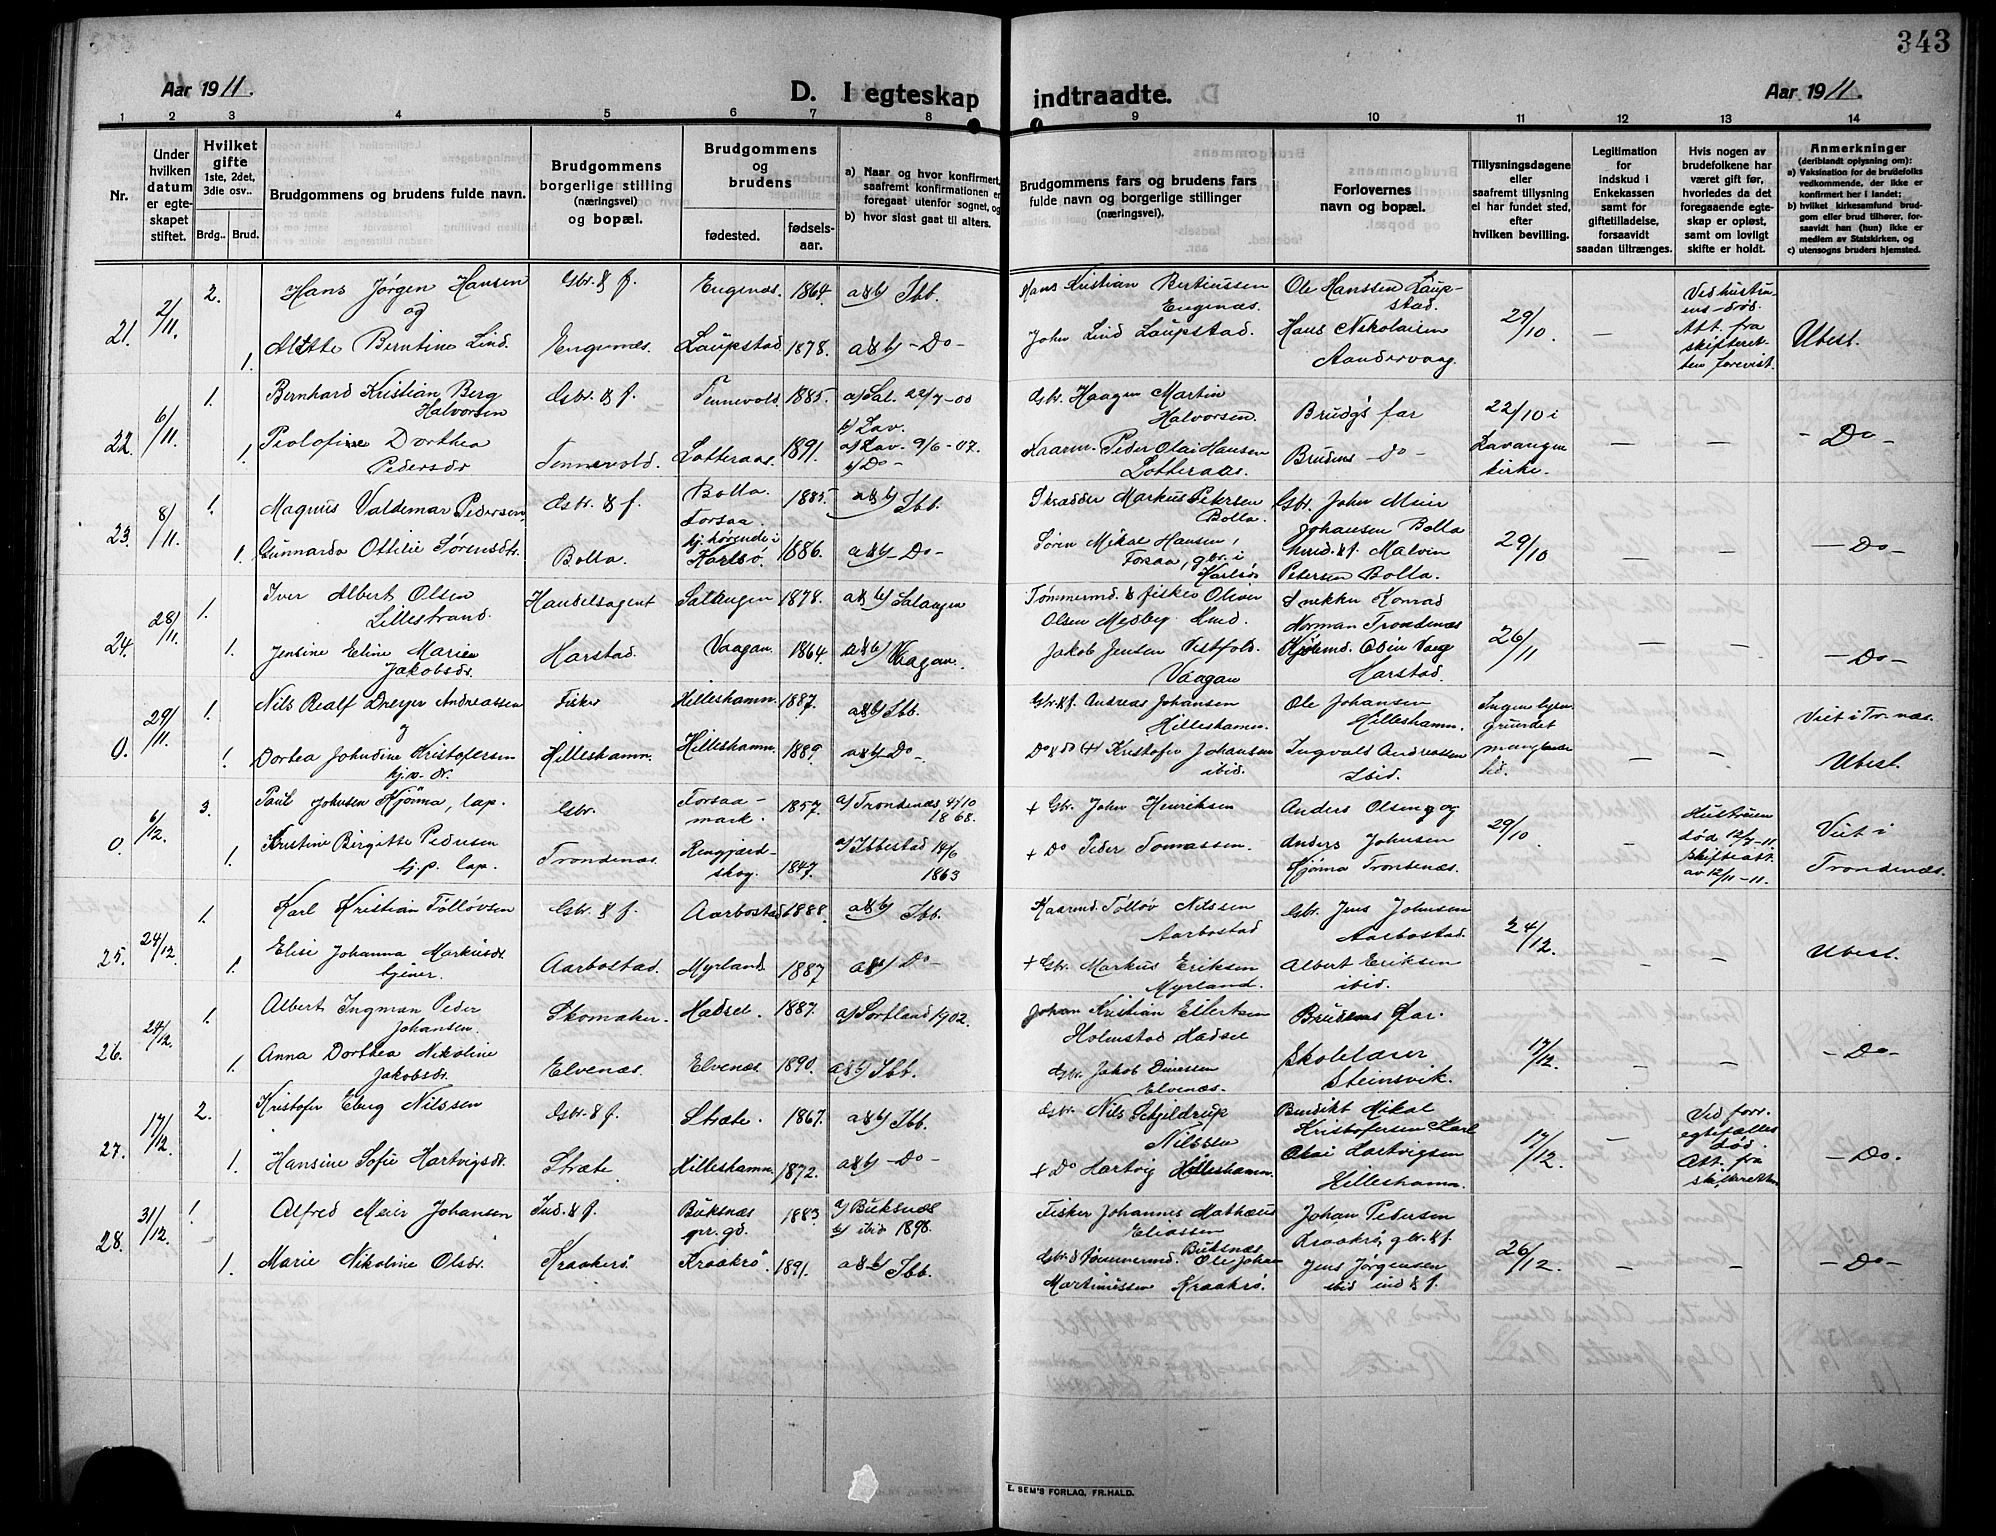 343
Aar 1911.
D. I egteskap indtraadte.
Aar 1911.
1 2 3 4 5 6 7 8 9 10 11 12 13 14
Nr.
Under hvilken datum er egteskapet stiftet.
Hvilket gifte 1ste, 2det, 3die osv..
Brdg.. Brud.
Brudgommens og brudens fulde navn.
Brudgommens borgerlige stilling (næringsvei) og bopæl.
Brudgommens og brudens
fødested. fødselsaar.
a) Naar og hvor konfirmert, saafremt konfirmationen er foregaat utenfor sognet, og
b) hvor sidst gaat til alters.
Brudgommens fars og brudens fars fulde navn og borgerlige stillinger (næringsvei).
Forlovernes navn og bopæl.
Tillysningsdagene eller saafremt tillysning ei har fundet sted, efter hvilken bevilling.
Legitimation for indskud i Enkekassen samt for giftetilladelse, forsaavidt saadan tiltrænges.
Hvis nogen av brudefolkene har været gift før, hvorledes da det foregaaende egteskap er opløst, samt om lovligt skifte er holdt.
Anmerkninger (deriblandt oplysning om):
a) Vaksination for de brudefolks vedkommende, der ikke er konfirmert her i landet;
b) hvilket kirkesamfund brudgom eller brud tilhører, forsaavidt han (hun) ikke er medlem av Statskirken, og
c) utensogns bruders hjemsted.
21. 2/11. 2. Hans Jørgen Hansen Gbr. & f. Engenæs. 1864. a&b) Ibb. Hans Kristian Bertiussen Engenæs. Ole Hanssen Laupstad. 29/10 – Ved hustruens død. Att. fra skifteretten forevist. Ubest.
og
1. Alette Berntine Lind. Engenæs. Laupstad. 1878. a&b) – Do – John Lind Laupstad. Hans Nikolaisen Aandervaag.
22. 6/11. 1. Bernhard Kristian Berg Halvorsen Gbr. & f. Tennevold. 1885. a) Sal. 22/7-00 b) Lav. Gbr. Haagen Martin Halvorsen. Brudg's far 22/10 i Lavangen kirke. – – – Do –
1. Peolofine Dorthea Pedersdr Tennevold. Lotteraas. 1891. a) Lav. 9/6-07. b) Do – Kaarm. Peder Olai Hansen Lotteraas. Brudens – Do –
23. 8/11. 1. Magnus Valdemar Pedersen, Gbr. & f. Bolla. 1885. a&b) Ibb. Skrædder Markus Petersen Bolla. Gbr. John Meier Johansen Bolla 29/10 – – – Do –
1. Gunnarda Ottilie Sørensdtr. Bolla. Forsaa hj. hørende i Karlsø. 1886. a&b) Do – Søren Mikal Hansen, Forsaa, gbr. i Karlsø. hmd. & f. Malvin Petersen Bolla.
24. 28/11. 1. Iver Albert Olsen Lillestrand. Handelsagent Saltangen 1878. a&b) Salangen Tømmermd. & fisker Oliver Olsen Medby Hmd. Snekker Konrad Norman Trondenæs 26/11 – – – Do –
1. Jensine Eline Marie Jakobsdr. Harstad. Vaagan. 1864. a&b) Vaagan. Jakob Jensen Vestfold. Vaagan Odin Vang Harstad.
0. 29/11. 1. Nils Realf Dreyer Andreassen Fisker Hilleshamn. 1887. a&b) Ibb. Gbr. & f. Andreas Johansen Hilleshamn. Ole Johansen Hilleshamn. Ingen lysn. grundet manglende tid. – – Viet i Tr.næs.
1. Dortea Johndine Kristofersen Hilleshamn. Hilleshamn. 1889. a&b) Do – Do & do (+) Kristofer Johansen ibid. Ingvald Andreassen Ibid. Ubest.
0. 6/12. 3. Paul Johnsen Kjönna, lap. Gbr. Forsaamark. 1857. a) Trondenæs 4/10 1868. + Gbr. John Henriksen Anders Olsen og 29/10 Hustruen død 12/7-11. Skifteatt. av 12/11-11. Viet i Trondenæs.
1. Kristine Birgitte Pedersen lap. Trondenæs. Rengjærdskog. 1847. a) Ibbestad 14/6 1863 + Do Peder Tomassen. Anders Johnsen Kjönna Trondenæs.
25. 24/12. 1. Karl Kristian Tølløvsen Gbr. & f. Aarbostad 1888. a&b) Ibb. Kaarmd. Tølløv Nilssen Aarbostad Gbr. Jens Johnsen Aarbostad. 24/12. – – Ubest.
1. Elise Johanna Markusdr. Aarbostad. Myrland 1887 a&b) Do – + Gbr. Markus Eriksen Myrland. Albert Eriksen ibid.
26. 24/12. 1. Albert Ingman Peder Johansen. Skomaker. Hadsel. 1887. a) Sortland 1902. Johan Kristian Eilertsen Holmstad Hadsel Brudens far. 17/12. – – – Do –
1. Anna Dorthea Nikoline Jakobsdr. Elvenæs. Elvenæs. 1890. a&b) Ibb. Gbr. Jakob Dinessen Elvenæs. Skolelærer Steinsvik.
27. 17/12. 2. Kristofer Eberg Nilssen Gbr. & f. Stræte. 1867. a&b) Ibb. Gbr. Nils Schjeldrup Nilssen Bendikt Mikal Kristofersen Karl 17/12. – Ved forr. egtefælles død. Att. fra skifteretten – Do.
1. Hansine Sofie Hartvigsdr. Stræte. Hilleshamn. 1872. a&b) – Do – + Do Hartvig Hilleshamn. Olai Hartvigsen Hilleshamn.
28. 31/12. 1. Alfred Meier Johansen Ind. & f. Buksnæs pr. gd. 1883. a) Buksnæs b) ibid 1898. Fisker Johannes Mathæus Eliassen Buksnæs Johan Pedersen Kraakrø, gbr. & f. 26/12. – – – Do –
1. Marie Nikoline Olsdr. Kraakerø Kraakrø. 1891. a&b) Ibb. Gbr. & Tømmermd. Ole Johan Martinussen Kraakrø. Jens Jørgensen ibid ind & f.
E. SEM'S FORLAG, FR.HALD.